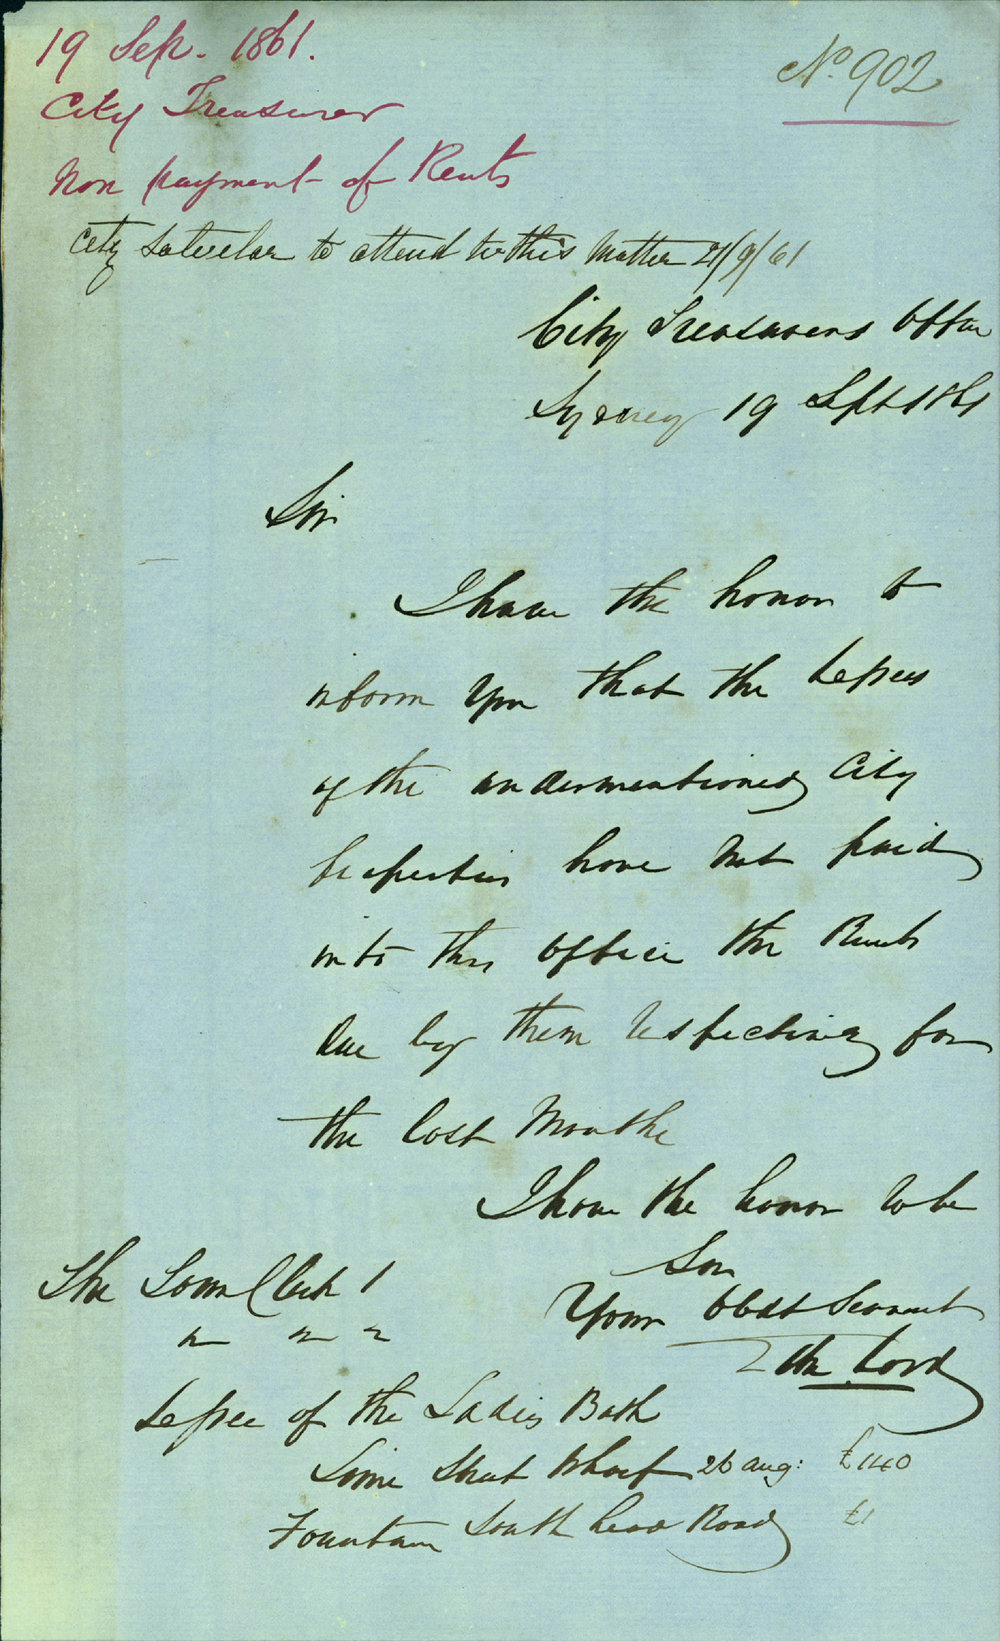 19 Sep. 1861.
No. 902
City Treasurer
Non payment of Rents
City Solicitor to attend to this matter 21/9/61
City Treasurers Office
Sydney 19 Sept 1861
Sir
I have the honor to
inform you that the Lessees
of the undermentioned City
properties have not paid
into this Office the Rents
due by them respecting for
the last Months
I have the honor to be
Sir
The Town Clerk
Your Obdt Servant
Lord
" " "
Lessee of the Ladies Bath
Lime Street Wharf 26 Aug: £140
Fountain South head Road £1